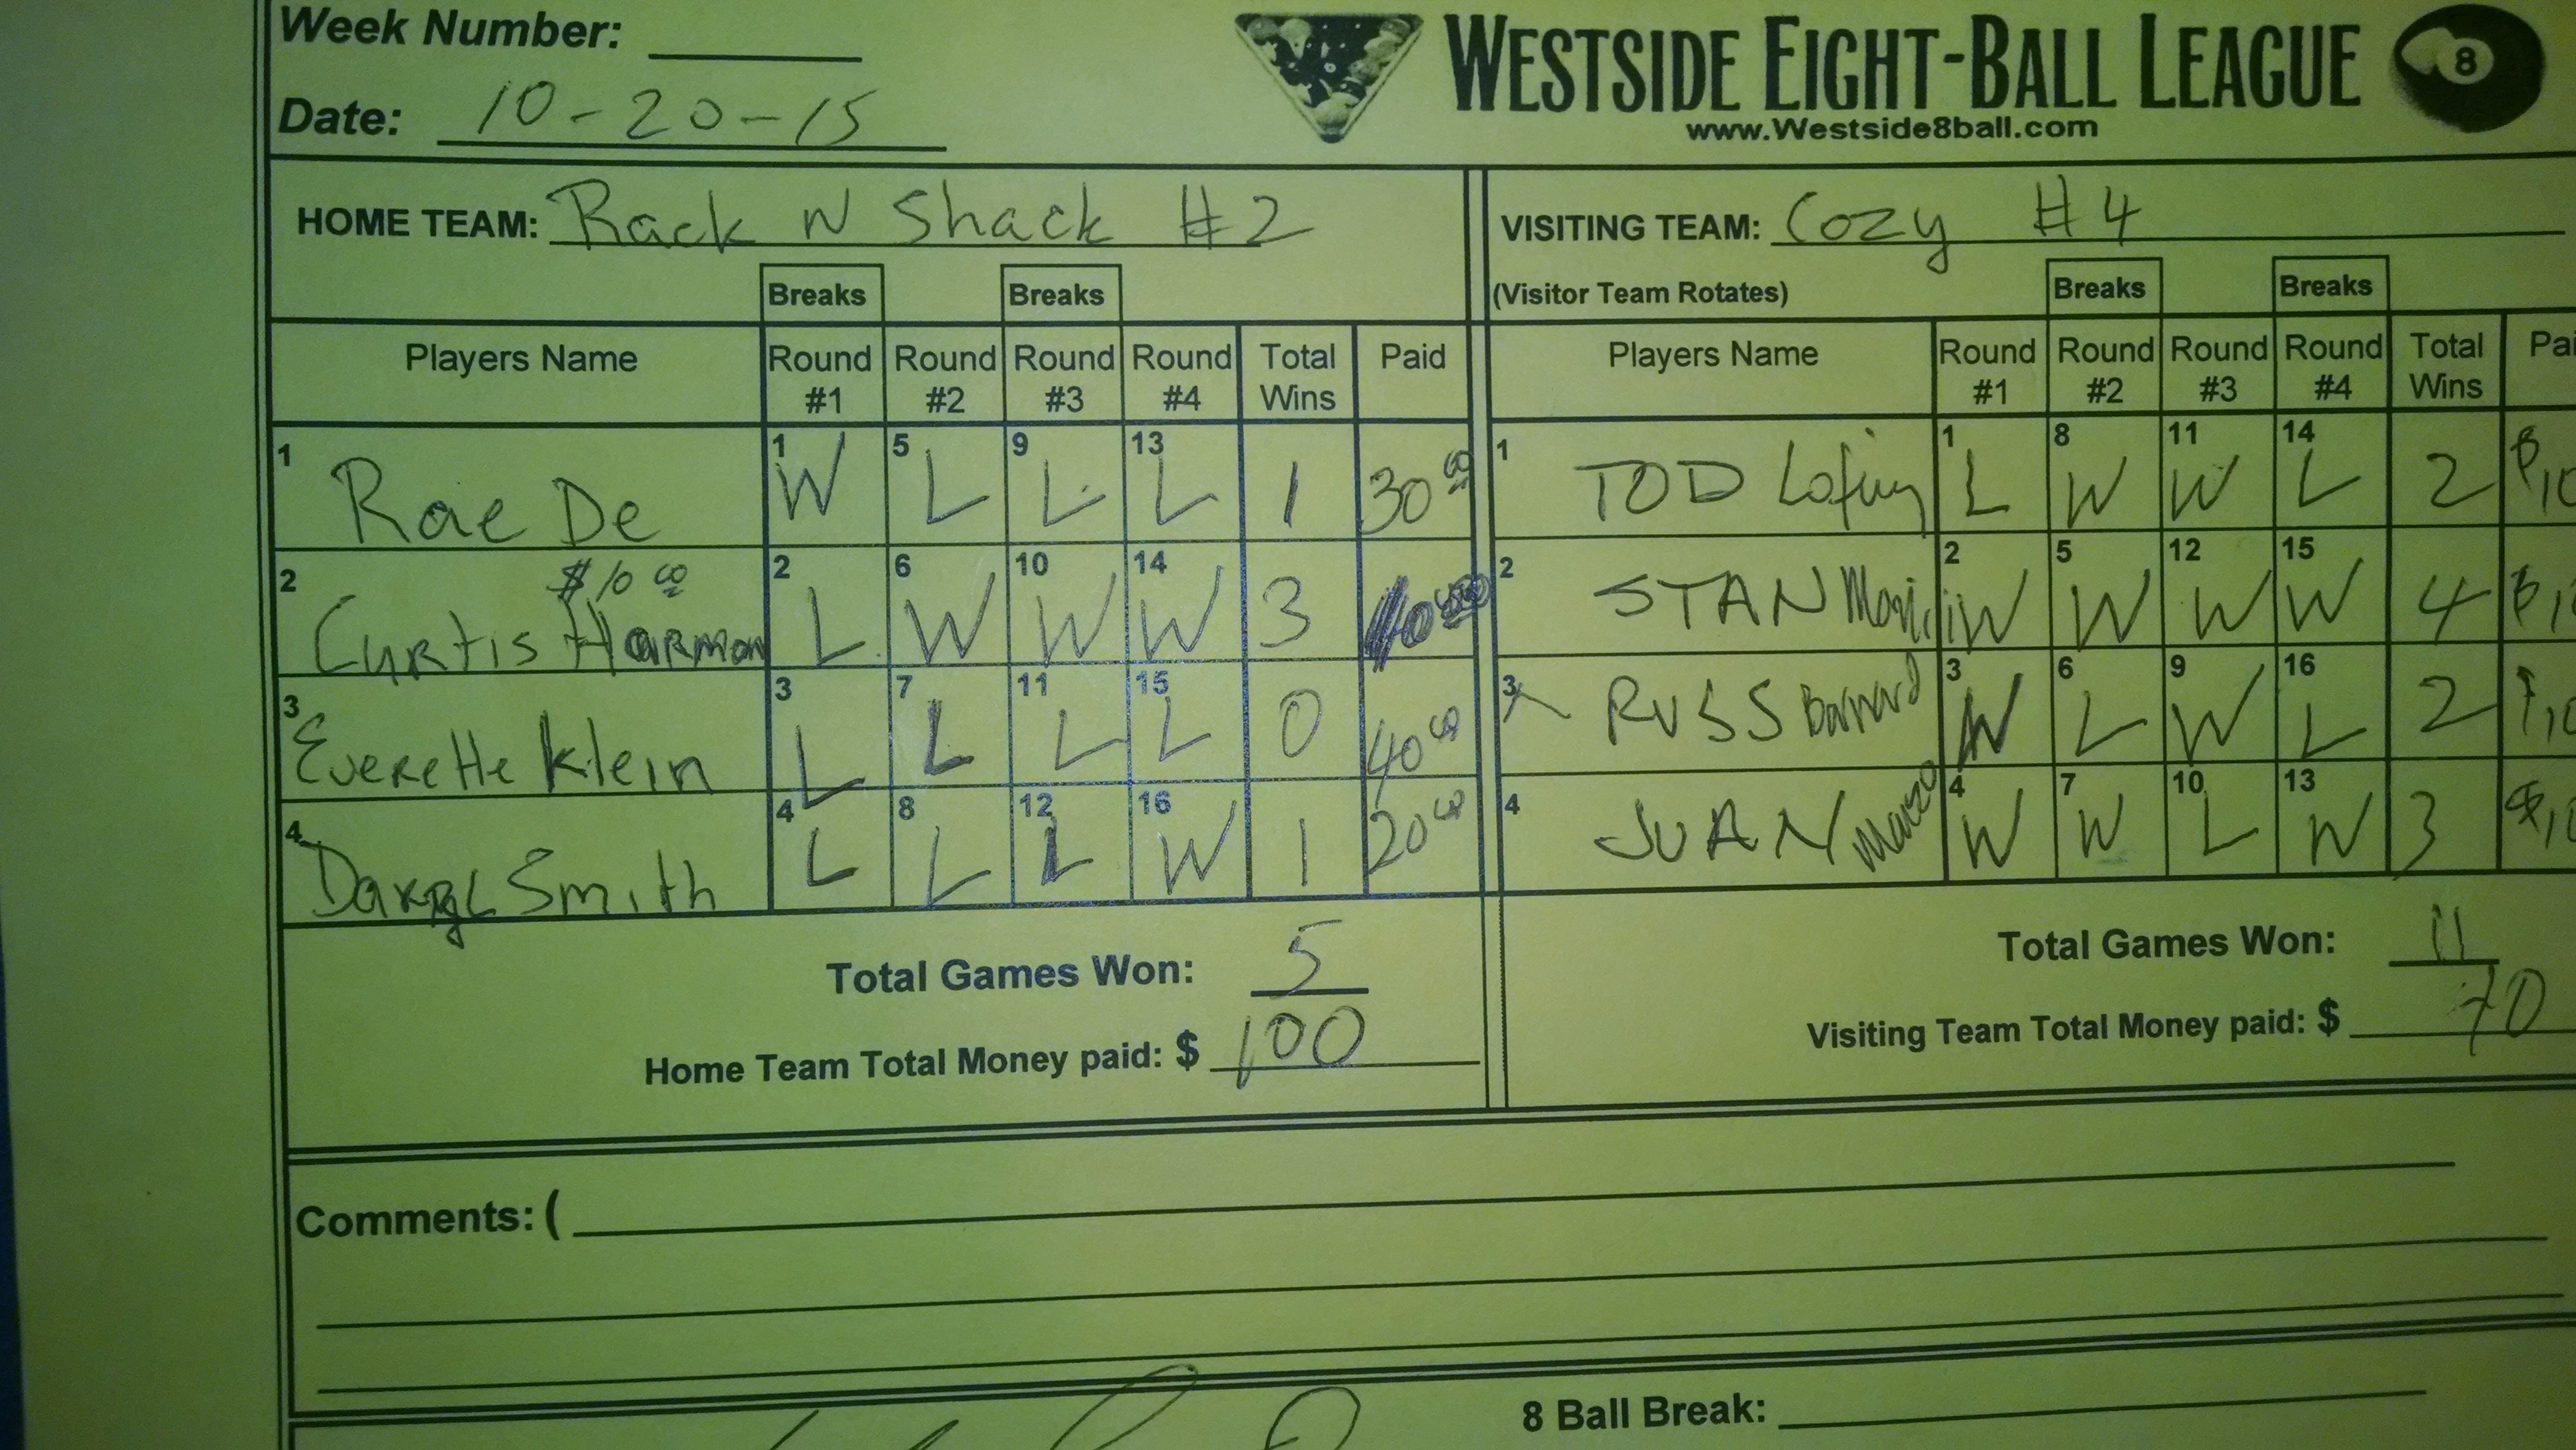 Week Number:
Date: 10-20-15
WESTSIDE EIGHT-BALL LEAGUE 8
www.Westside8ball.com
HOME TEAM: Rack N Shack #2
VISITING TEAM: Cozy #4
Breaks Breaks
(Visitor Team Rotates) Breaks Breaks
Players Name Round #1 Round #2 Round #3 Round #4 Total Wins Paid
1 Rae De 1 W 5 L 9 L 13 L 1 30 00
2 Curtis Harmon $10 00 2 L 6 W 10 W 14 W 3
3 Everette Klein 3 L 7 L 11 L 15 L 0 40 00
4 Smith 4 L 8 L 12 L 16 W 1 20 00
Total Games Won: 5
Home Team Total Money paid: $ 100
Players Name Round #1 Round #2 Round #3 Round #4 Total Wins
1 TOD 1 L 8 W 11 W 14 L 2
2 STAN 2 W 5 W 12 W 15 W 4
3 RUSS Barnard 3 W 6 L 9 W 16 L 2
4 JUAN 4 W 7 W 10 L 13 W 3
Total Games Won: 11
Visiting Team Total Money paid: $ 70
Comments: (
8 Ball Break: